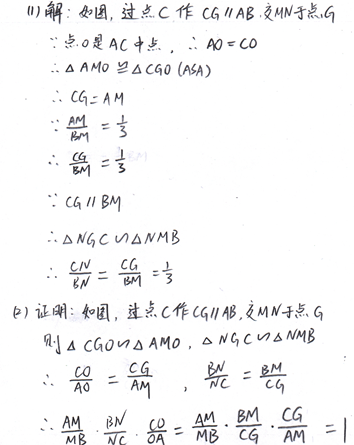 (1) 解：如图，过点C作CG∥AB交MN于点G
∵点O是AC中点，∴AO=CO
∴△AMO≌△CGO(ASA)
∴CG=AM
∵AM/BM=1/3
∴CG/BM=1/3
∵CG∥BM
∴△NGC∽△NMB
∴CN/BN=CG/BM=1/3
(2) 证明：如图，过点C作CG∥AB，交MN于点G
则△CGO∽△AMO，△NGC∽△NMB
∴CO/AO=CG/AM，BN/NC=BM/CG
∴AM/MB·BN/NC·CO/OA=AM/MB·BM/CG·CG/AM=1